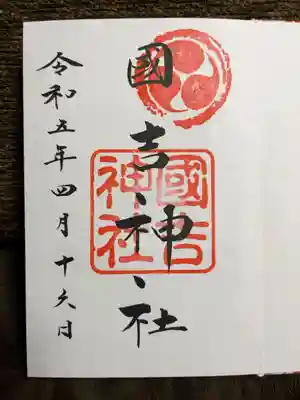 國吉神社
國吉神社
令和五年四月十六日